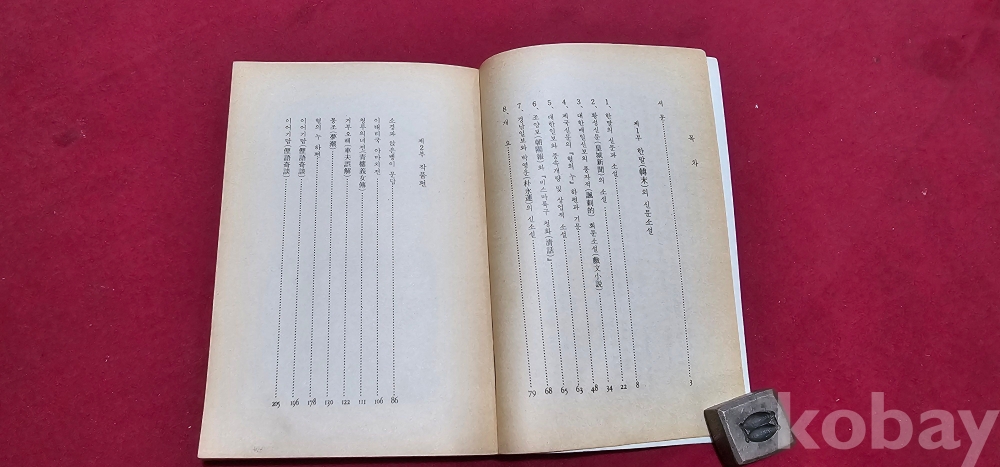 목차
서문 3
제1부 한말(韓末)의 신문소설
1、한말의 신문과 소설 8
2、황성신문(皇城新聞)의 소설 22
3、대한매일신보의 풍자적(諷刺的) 희문소설(戲文小說) 34
4、제국신문의 『혈의 누』 하편과 기문 48
5、대한일보와 풍속개량 및 상업적 소설 63
6、조양보(朝陽報)와 『비스마룩구 청화(淸話)』 65
7、경남일보와 박영운(朴永運)의 신소설 68
8、개요 79
제2부 작품편
소경과 앉은뱅이 문답 86
이태리국 아마치전 106
청루의녀전(靑樓義女傳) 111
거부오해(車夫誤解) 122
몽조(夢潮) 130
혈의 누 하편 178
이어기담(俚語奇談) 196
이어기담(俚語奇談) 205
kobay